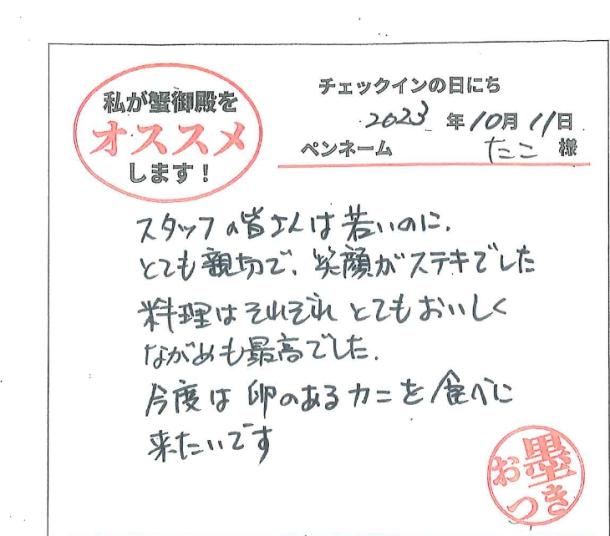 私が蟹御殿を
オススメ
します！
チェックインの日にち
2023 年10月11日
ペンネーム たこ 様
スタッフの皆さんは若いのに、
とても親切で、笑顔がステキでした
料理はそれぞれとてもおいしく
ながめも最高でした。
今度は卵のあるカニを食べに
来たいです
お墨
つき